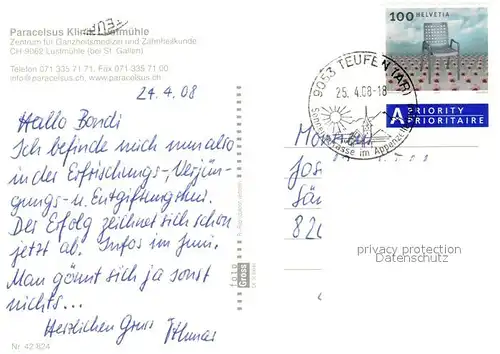 Paracelsus Klinik Lustmühle
Zentrum für Ganzheitsmedizin und Zahnheilkunde
CH-9062 Lustmühle (bei St. Gallen)
Telefon 071 335 71 71, Fax 071 335 71 00
info@paracelsus.ch, www.paracelsus.ch
24.4.08
Hallo Bondi
Ich befinde mich nun also
in der Erfrischungs-, Verjün-
gungs- u. Entgiftungskur.
Der Erfolg zeichnet sich schon
jetzt ab. Infos im Juni.
Man gönnt sich ja sonst
nichts...
Herzlichen Gruss
Nr. 42 824
foto
Gross
100 HELVETIA
A PRIORITY
PRIORITAIRE
9053 TEUFEN (AR)
25.4.08-18
im Appenzell
Jos
820
privacy protection
Datenschutz